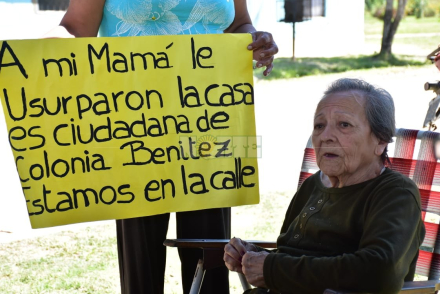 A mi Mamá le
Usurparon la casa
es ciudadana de
Colonia Benitez
Estamos en la calle